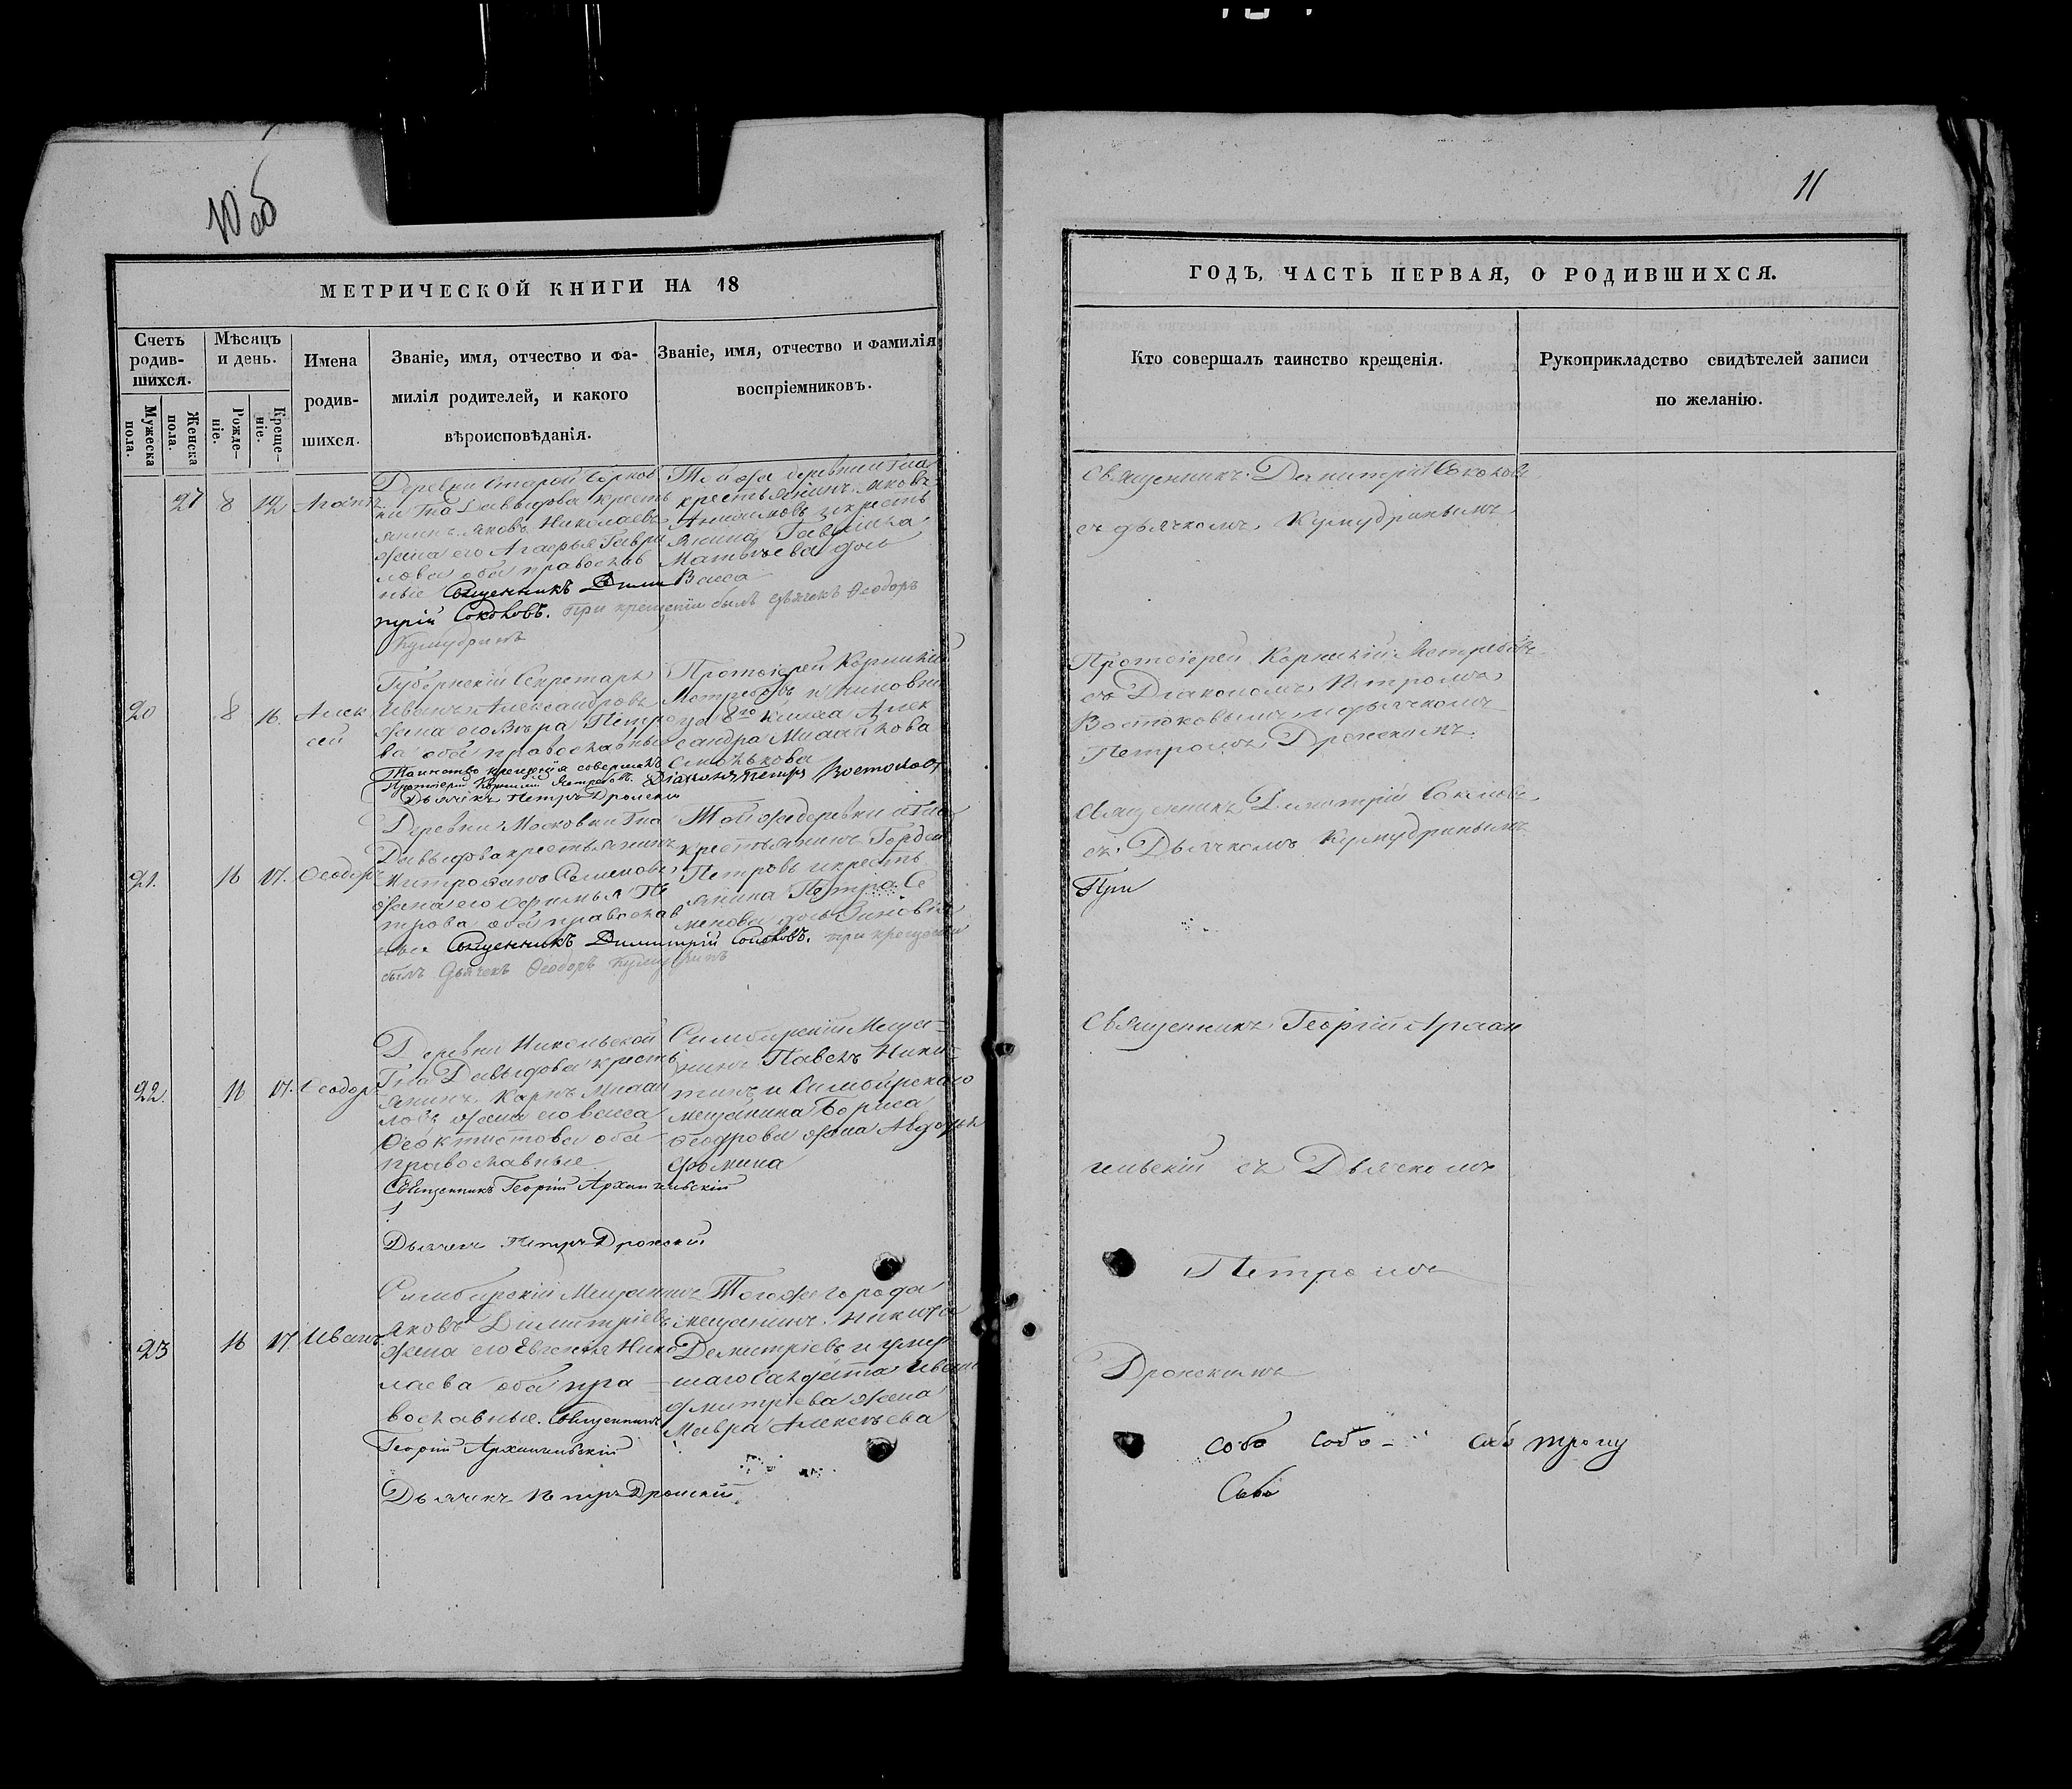 10 об
11
МЕТРИЧЕСКОЙ КНИГИ НА 18
Счетъ родив-шихся.
Мѣсяцъ и день.
Имена родив-шихся.
Званіе, имя, отчество и фа-
милія родителей, и какого
вѣроисповѣданія.
Званіе, имя, отчество и фамилія
воспріемниковъ.
Мужеска пола.
Женска пола.
Рожде-ніе.
Креще-ніе.
27 8 12
Деревни Старой
ки Гна Давыдова кресть
янинъ Яковъ Николаевъ
жена его Агафья Гаври
лова оба православ
ные Священникъ Дими
трій Соколовъ. При крещеніи былъ дьячекъ Ѳеодоръ
Кумудринъ
Той же деревни Гна
крестьянинъ Яковъ
кресть
янина Гавриила
Матвѣева дочь
Васса
20 8 16. Алек
сей
Губернскій Секретарь
Иванъ Александровъ
жена его Вѣра Петро
ва оба православные
Таинство крещенія совершалъ
Протоіерей Корнилій Ястребовъ. Діаконъ Петръ Востоковъ
Дьячекъ Петръ Дронскій
Протоіерей Корнилій
Ястребовъ и чиновни
ца 8го класса Алек
сандра Михайлова
21. 16 17. Ѳеодоръ
Деревни Московки Гна
Давыдова крестьянинъ
Митрофанъ Семеновъ
жена его Ефимья Пе
трова оба православ
ные Священникъ Димитрій Соколовъ. при крещеніи
былъ Дьячекъ Ѳеодоръ Кумудринъ
Той же деревни и Гна
крестьянинъ Гордей
Петровъ и кресть
янина Петра Се
менова дочь Зиновія
22. 17. Ѳеодоръ
Деревни Никольской
Гна Давыдова кресть
янинъ Карпъ Михай
ловъ жена его Васса
Ѳеоктистова оба
православные
Священникъ Георгій Архангельскій
Дьячекъ Петръ Дронскій
Симбирскій Меща-
нинъ Павелъ Ники-
тинъ и Симбирскаго
мещанина Бориса
Ѳеодрова жена Авдотья
Фомина
23 16 17. Иванъ
Симбирскій Мещанинъ
Яковъ Димитріевъ
жена его Евгенія Нико
лаева оба пра-
вославные. Священникъ
Георгій Архангельскій
Дьячекъ Петръ Дронскій
Того же города
мещанинъ Никита
Демитріевъ и умер
шаго Салдата Ивана
Дмитріева жена
Мавра Алексѣева
ГОДЪ, ЧАСТЬ ПЕРВАЯ, О РОДИВШИХСЯ.
Кто совершалъ таинство крещенія.
Рукоприкладство свидѣтелей записи
по желанію.
Священникъ Димитрій Соколовъ
съ дьячкомъ Кумудринымъ
Протоіерей Корнилій Ястребовъ
съ Діакономъ Петромъ
Востоковымъ и дьячкомъ
Петромъ Дронскимъ
Священникъ Димитрій Соколовъ
съ Дьячкомъ Кумудринымъ
При
Священникъ Георгій Архан
гельскій съ Дьячкомъ
Петромъ
Дронскимъ
собо собо